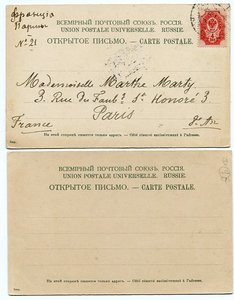 Франція
Парижъ
№ 21
ВСЕМІРНЫЙ ПОЧТОВЫЙ СОЮЗЪ. РОССІЯ.
UNION POSTALE UNIVERSELLE. RUSSIE.
ОТКРЫТОЕ ПИСЬМО. — CARTE POSTALE.
Mademoiselle Marthe Marty
3. Rue de Faubg St Honoré 3.
Paris
France
На этой сторонѣ пишется только адресъ. — Côté réservé exclusivement à l'adresse.
ВСЕМІРНЫЙ ПОЧТОВЫЙ СОЮЗЪ. РОССІЯ.
UNION POSTALE UNIVERSELLE. RUSSIE.
ОТКРЫТОЕ ПИСЬМО. — CARTE POSTALE.
На этой сторонѣ пишется только адресъ. — Côté réservé exclusivement à l'adresse.